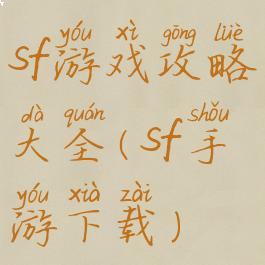 yóu xì gōng lüè
sf游戏攻略
dà quán shǒu
大全(sf手
yóu xià zài
游下载)